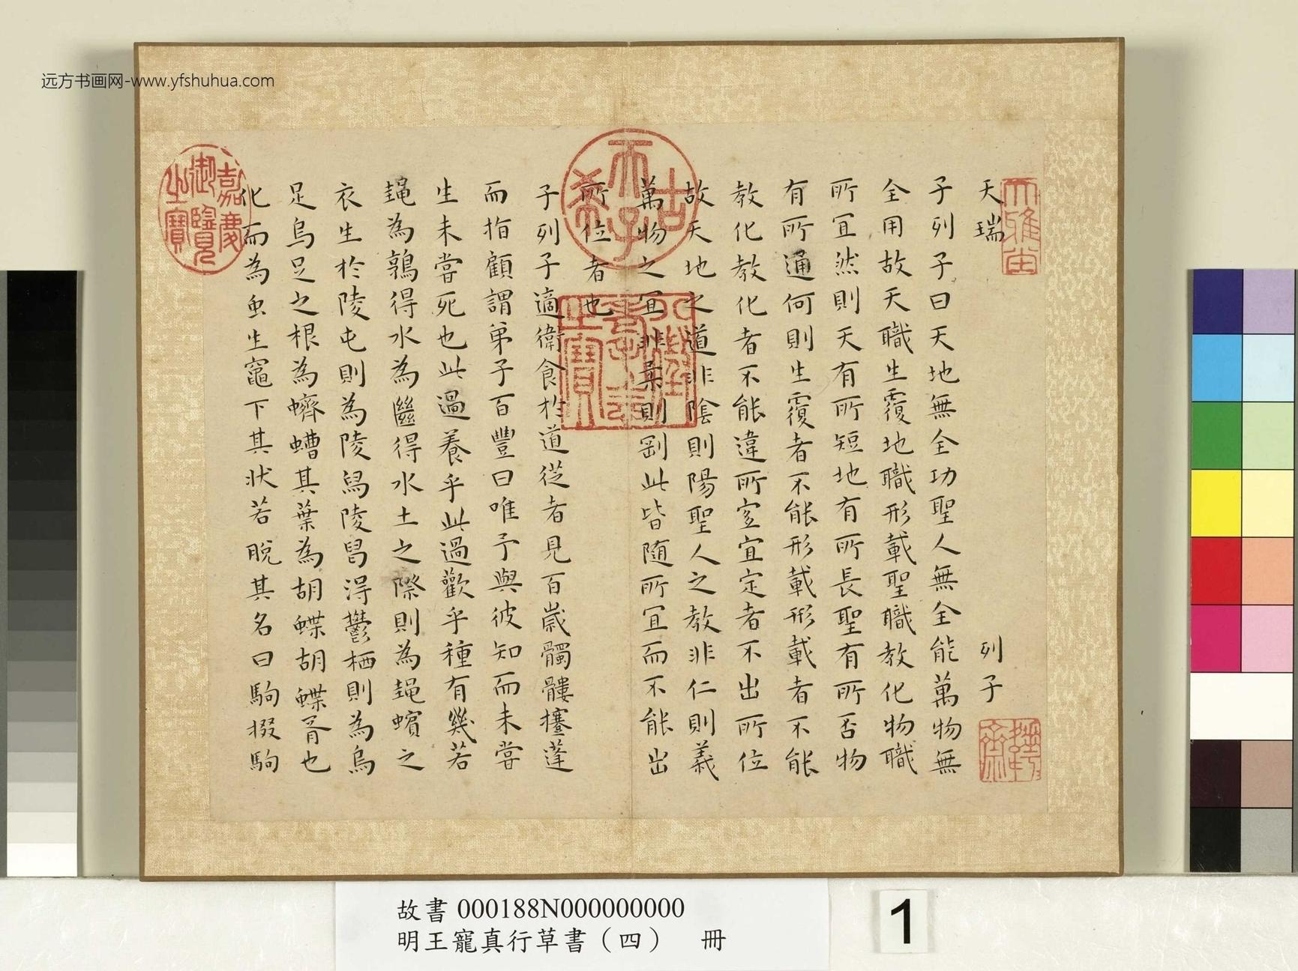 远方书画网-www.yfshuhua.com
天瑞 列子
子列子曰天地無全功聖人無全能萬物無
全用故天職生覆地職形載聖職教化物職
所宜然則天有所短地有所長聖有所否物
有所通何則生覆者不能形載形載者不能
教化教化者不能違所宜宜定者不出所位
故天地之道非陰則陽聖人之教非仁則義
萬物之宜非柔則剛此皆隨所宜而不能出
所位者也
子列子適衛食於道從者見百歲髑髏攓蓬
而指顧謂弟子百豐曰唯予與彼知而未嘗
生未嘗死也此過養乎此過歡乎種有幾若
鼃為鶉得水為㡭得水土之際則為鼃蠙之
衣生於陵屯則為陵舄陵舄得鬱栖則為烏
足烏足之根為蠐螬其葉為胡蝶胡蝶胥也
化而為虫生竈下其狀若脫其名曰駒掇駒
古希天子
嘉慶御覽之寶
大雅堂
故書 000188N000000000
明王寵真行草書（四） 冊
1